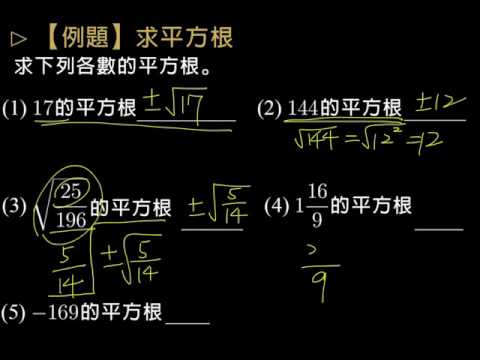 ▷【例題】求平方根
求下列各數的平方根。
(1) 17的平方根 ±√17
(2) 144的平方根 ±12
√144 = √12² = 12
(3) √(25/196) 的平方根 ±√(5/14)
5/14 ±√(5/14)
(4) 1 16/9 的平方根
9
(5) −169的平方根